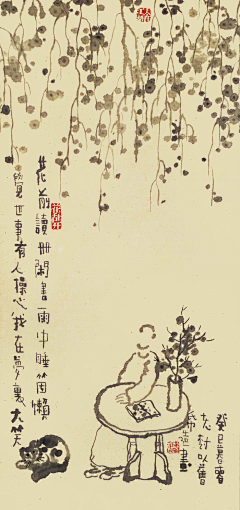 花前讀冊閑書雨中睡箇懶
覺世事有人操心我在夢裏大笑
癸巳暮春
老樹以舊
紙造畫